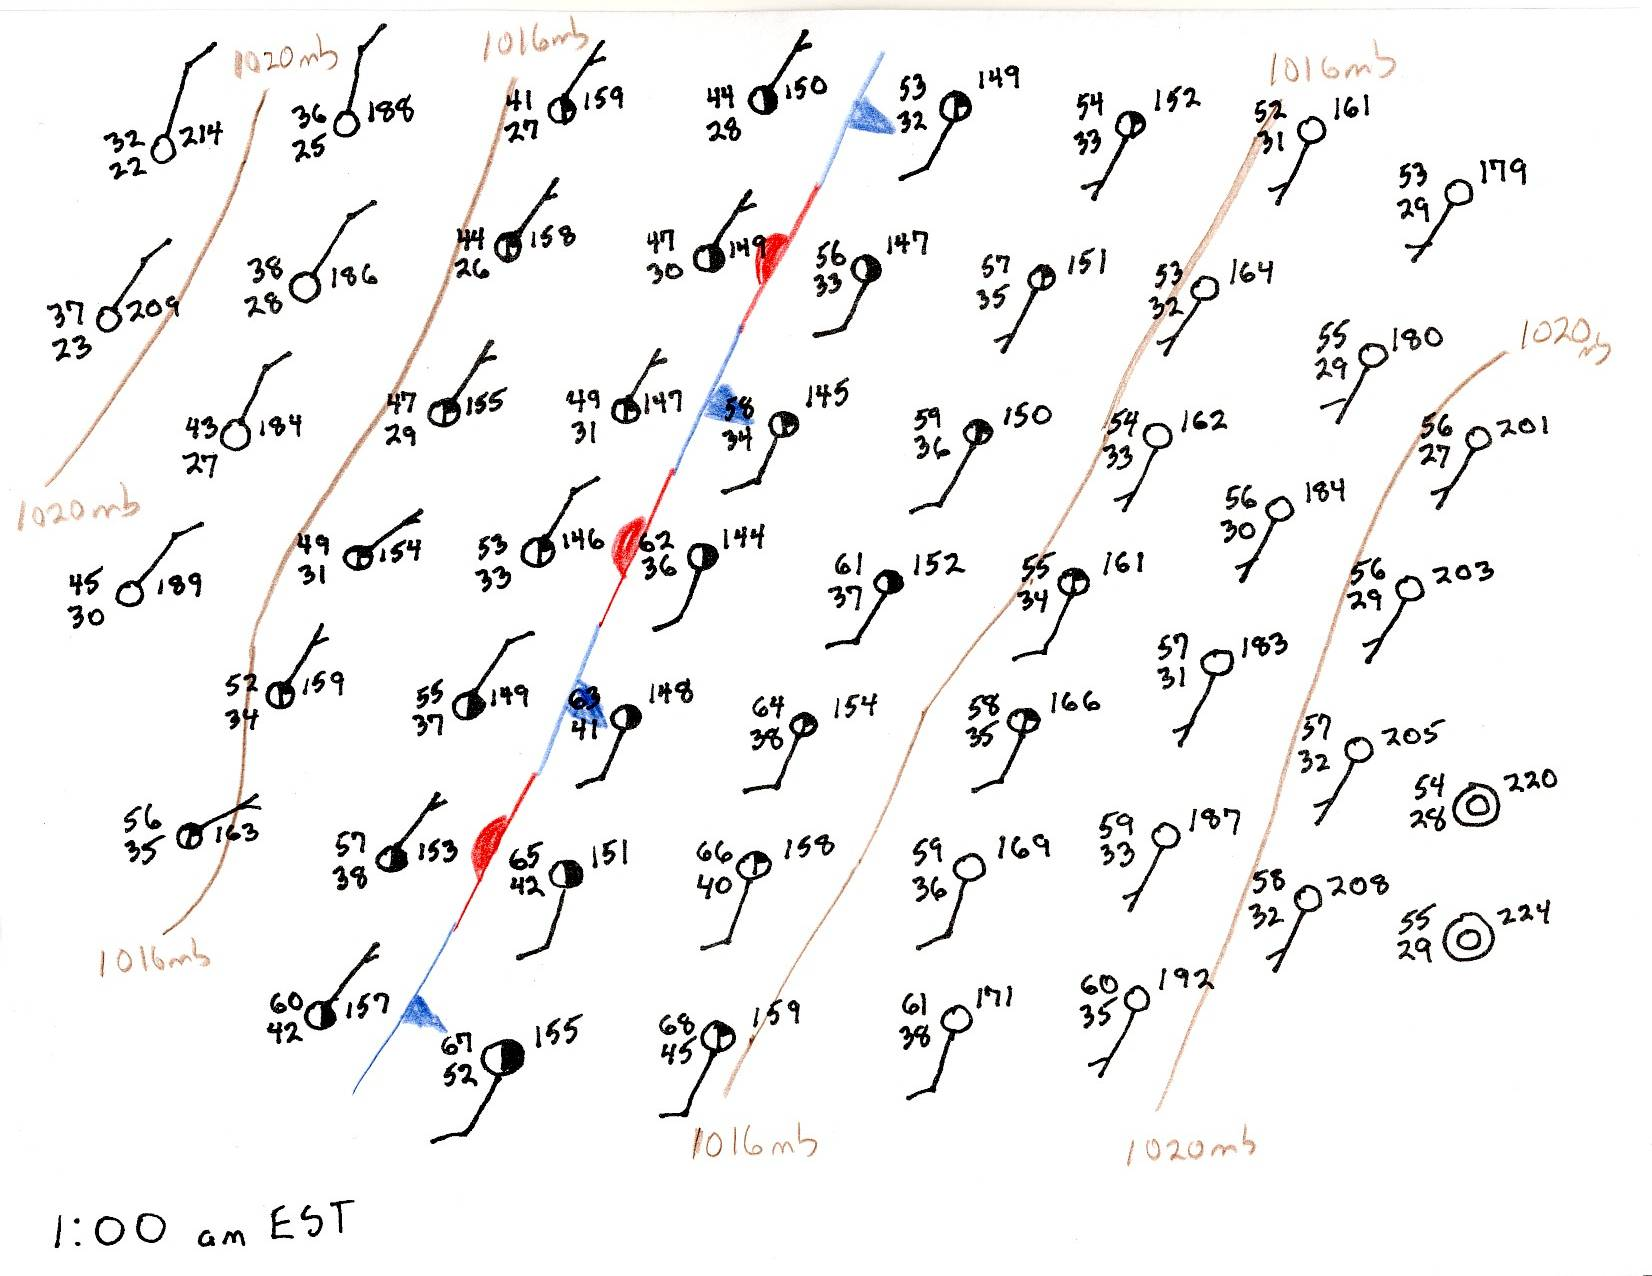 1020mb
1016mb
1016mb
32 214
22
36 188
25
41 159
27
44 150
28
53 149
32
54 152
33
52 161
31
53 179
29
37 209
23
38 186
28
44 158
26
47 149
30
56 147
33
57 151
35
53 164
32
55 180
29
1020mb
43 184
27
47 155
29
49 147
31
58 145
34
59 150
36
54 162
33
56 184
30
56 201
27
1020mb
45 189
30
49 154
31
53 146
33
62 144
36
61 152
37
55 161
34
57 183
31
56 203
29
52 159
34
55 149
37
63 148
41
64 154
38
58 166
35
57 205
32
54 220
28
56 163
35
57 153
38
65 151
42
66 158
40
59 169
36
59 187
33
58 208
32
55 224
29
1016mb
60 157
42
67 155
52
68 159
45
61 171
38
60 192
35
1016mb
1020mb
1:00 am EST